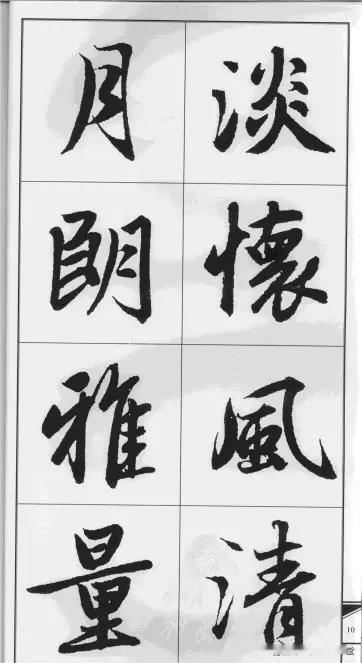 淡懷風清
月朗雅量
10